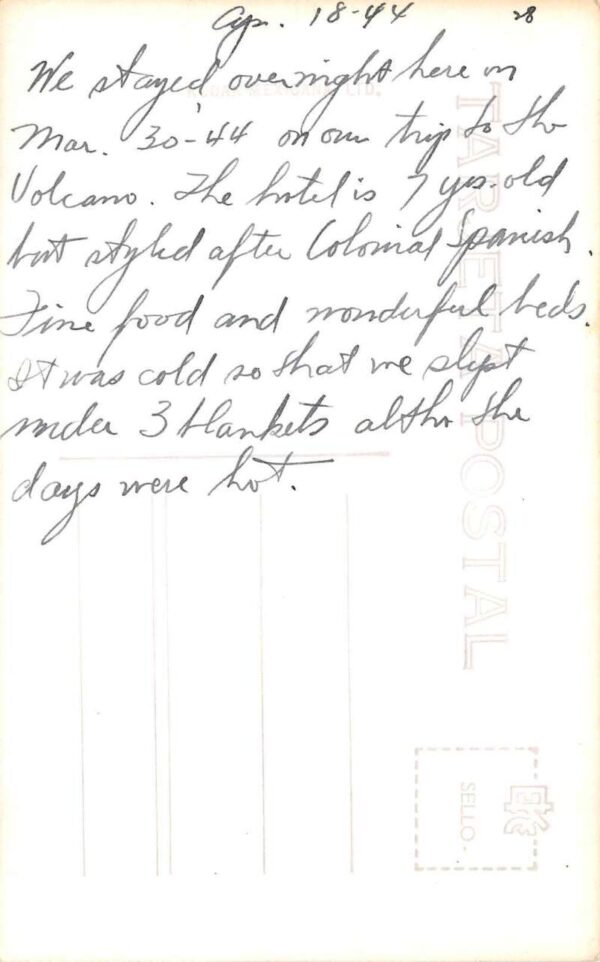 Apr. 18-44 28
We stayed overnight here on
Mar. 30-44 on our trip to the
Volcano. The hotel is 7 yrs. old
but styled after Colonial Spanish.
Fine food and wonderful beds.
It was cold so that we slept
under 3 blankets altho the
days were hot.
KODAK MEXICANA, LTD.
TARJETA POSTAL
SELLO
EKC